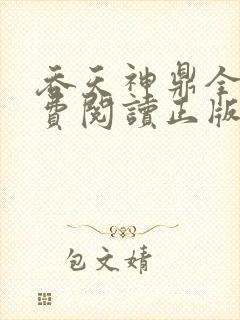 吞天神鼎全
費閱讀正版
包文婧